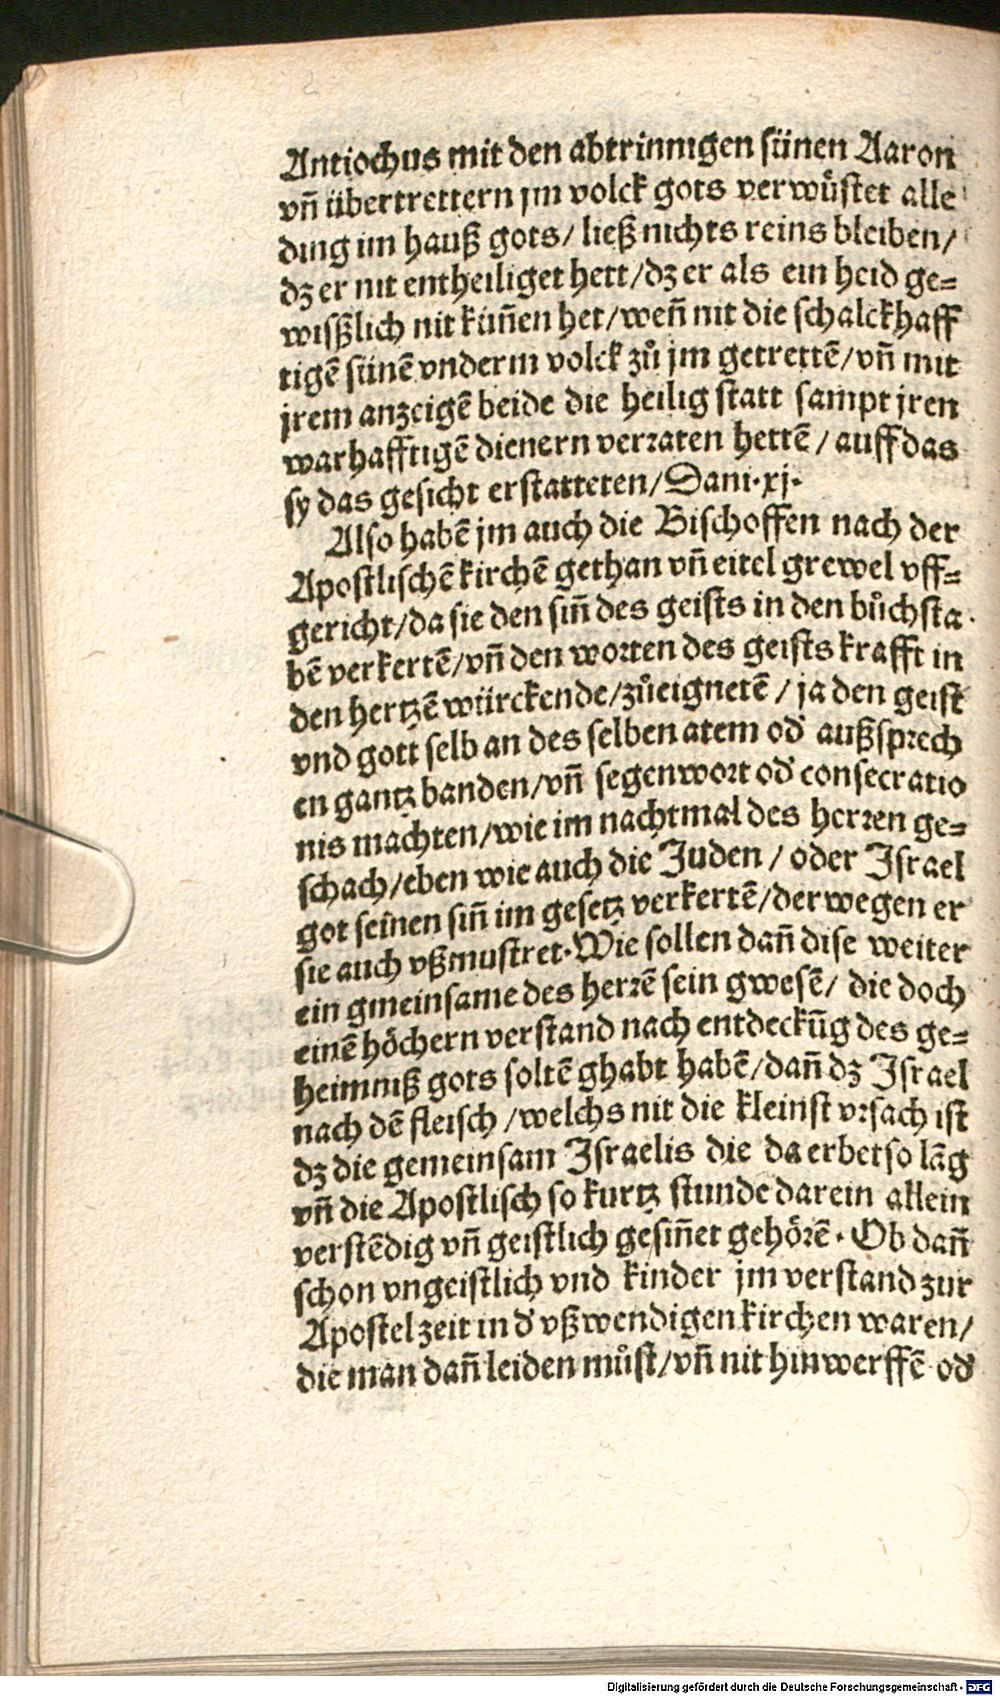 Antiochus mit den abtrinnigen sünen Aaron
vn̄ übertrettern jm volck gots verwůstet alle
ding im hauß gots/ ließ nichts reins bleiben/
dz er nit entheiliget hett/dz er als ein heid ge=
wißlich nit küñen het/weñ nit die schalckhaff
tigē sünē vnderm volck zů jm getrettē/vn̄ mit
jrem anzeigē beide die heilig statt sampt jren
warhafftigē dienern verraten hettē/ auff das
sy das gesicht erstatteten/Dani·xj·
Also habē jm auch die Bischoffen nach der
Apostlischē kirchē gethan vn̄ eitel grewel vff=
gericht/da sie den siñ des geists in den bůchsta
bē verkertē/vn̄ den worten des geists krafft in
den hertzē würckende/zůeignetē/ ja den geist
vnd gott selb an des selben atem od' außsprech
en gantz banden/vn̄ segenwort od' consecratio
nis machten/wie im nachtmal des herren ge=
schach/eben wie auch die Juden / oder Israel
got seinen siñ im gesetz verkertē/derwegen er
sie auch vßmustret·Wie sollen dañ dise weiter
ein gmeinsame des herrē sein gwesē/ die doch
einē höchern verstand nach entdeckūg des ge=
heimniß gots soltē ghabt habē/dañ dz Israel
nach dē fleisch /welchs nit die kleinst vrsach ist
dz die gemeinsam Israelis die da erbet so lāg
vn̄ die Apostlisch so kurtz stunde darein allein
verstēdig vn̄ geistlich gesiñet gehörē· Ob dañ
schon vngeistlich vnd kinder jm verstand zur
Apostel zeit in d' vßwendigen kirchen waren/
die man dañ leiden můst/vn̄ nit hinwerffē od'
Digitalisierung gefördert durch die Deutsche Forschungsgemeinschaft - DFG